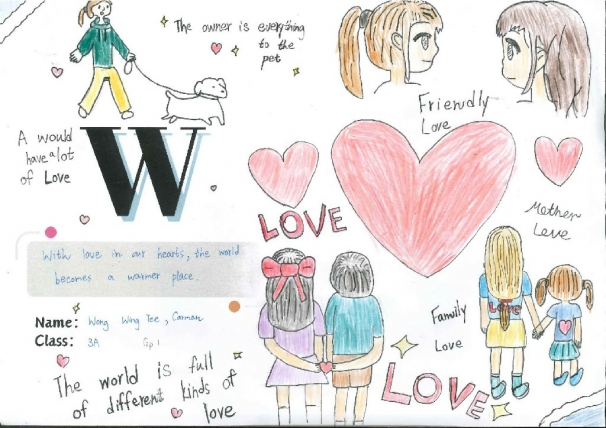 The owner is everything
to the
pet
A would
have a lot
of Love
W
Friendly
Love
LOVE
Mother
Love
With love in our hearts, the world
becomes a warmer place.
Name: Wong Wing Tee, Carman
Class: 3A Gp 1
Family
Love
LOVE
LOVE
The world is full
of different kinds of
love